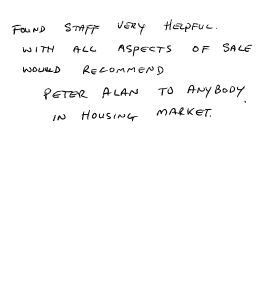 FOUND STAFF VERY HELPFUL.
WITH ALL ASPECTS OF SALE
WOULD RECOMMEND
PETER ALAN TO ANYBODY.
IN HOUSING MARKET.